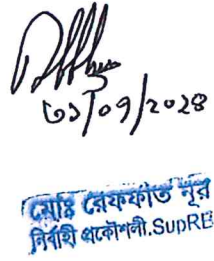 ০১/০৭/২০২৪
মোঃ রেফফাত নূর
নির্বাহী প্রকৌশলী.SupRE